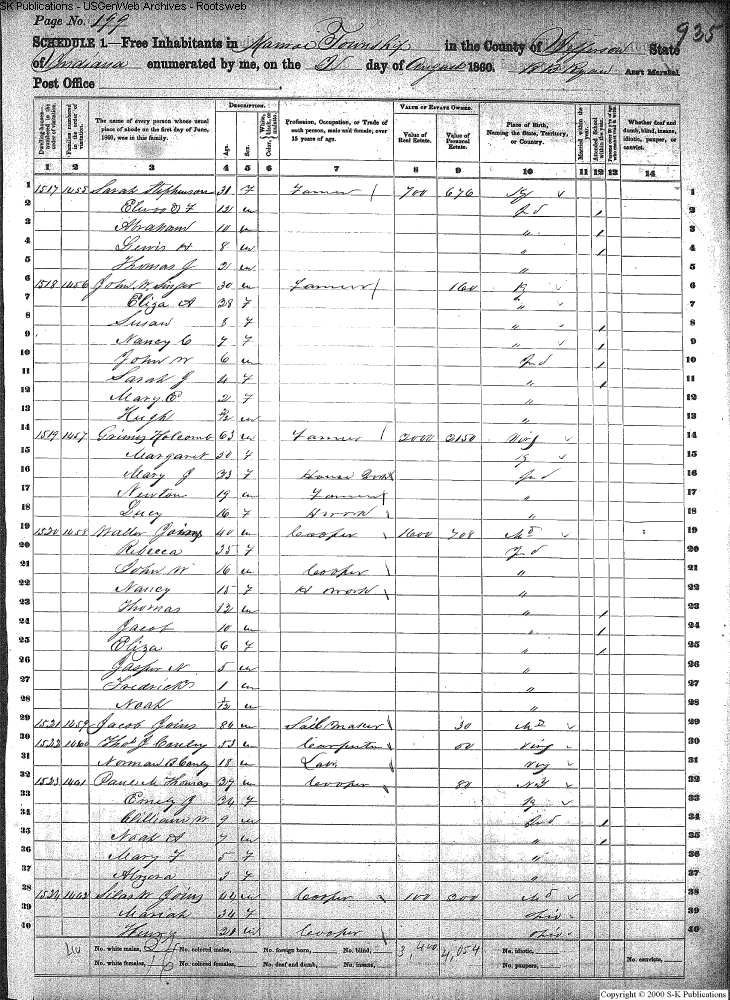 S-K Publications - USGenWeb Archives - Rootsweb
Page No. 199
935
SCHEDULE 1.—Free Inhabitants in Township in the County of Jefferson State
of Indiana enumerated by me, on the 21 day of August 1860. Ass't Marshal.
Post Office
DESCRIPTION. VALUE OF ESTATE OWNED.
Dwelling-houses—numbered in the order of visitation.
Families numbered in the order of visitation.
The name of every person whose usual place of abode on the first day of June, 1860, was in this family.
Age.
Sex.
Color, White, black, or mulatto.
Profession, Occupation, or Trade of each person, male and female, over 15 years of age.
Value of Real Estate.
Value of Personal Estate.
Place of Birth, Naming the State, Territory, or Country.
Married within the year.
Attended School within the year.
Whether deaf and dumb, blind, insane, idiotic, pauper, or convict.
1 2 3 4 5 6 7 8 9 10 11 12 13 14
1 1517 1455 Sarah Stephenson 31 F Farmer 700 676 Ky 1
2 12 m Ind 2
3 Abraham 10 m " 3
4 Lewis H 8 m " 4
5 Thomas J 2 m " 5
6 1518 1456 John W. 30 m Farmer 160 Ky 6
7 Eliza A 28 F " 7
8 Susan 8 F " 8
9 Nancy C 7 F " 9
10 John W 6 m Ind 10
11 Sarah J 4 F " 11
12 Mary E 2 F " 12
13 Hugh m " 13
14 1519 1457 Grimes Holcomb 63 m Farmer 2000 2150 Virg 14
15 Margaret 50 F Ky 15
16 Mary J 23 F House Work Ind 16
17 Newton 19 m Farmer " 17
18 Lucy 16 F H Work " 18
19 1520 1458 Walter Joins 40 m Cooper 1600 708 Md 19
20 Rebecca 35 F Ind 20
21 John W 16 m Cooper " 21
22 Nancy 15 F H Work " 22
23 Thomas 12 m " 23
24 Jacob 10 m " 24
25 Eliza 6 F " 25
26 Jasper N 5 m " 26
27 Fredrick 1 m " 27
28 Noah m " 28
29 1521 1459 Jacob Joins 84 m Sail Maker 30 Md 29
30 1522 1460 Thos J 53 m Carpenter Virg 30
31 Norman B 18 m Lab. Virg 31
32 1523 1461 M. Thomas 39 m Cooper 80 N.Y 32
33 Emily J 34 F Ky 33
34 William W 9 m Ind 34
35 Noah H 7 m " 35
36 Mary F 5 F " 36
37 3 F " 37
38 1524 1462 Silas W Joins 44 m Cooper 100 200 Md 38
39 Mariah 34 F Ohio 39
40 Henry 21 m Cooper Ohio 40
40 No. white males, 24 No. colored males, No. foreign born, No. blind, 4,054 No. idiotic,
No. white females, 16 No. colored females, No. deaf and dumb, No. insane, No. paupers, No. convicts,
Copyright © 2000 S-K Publications